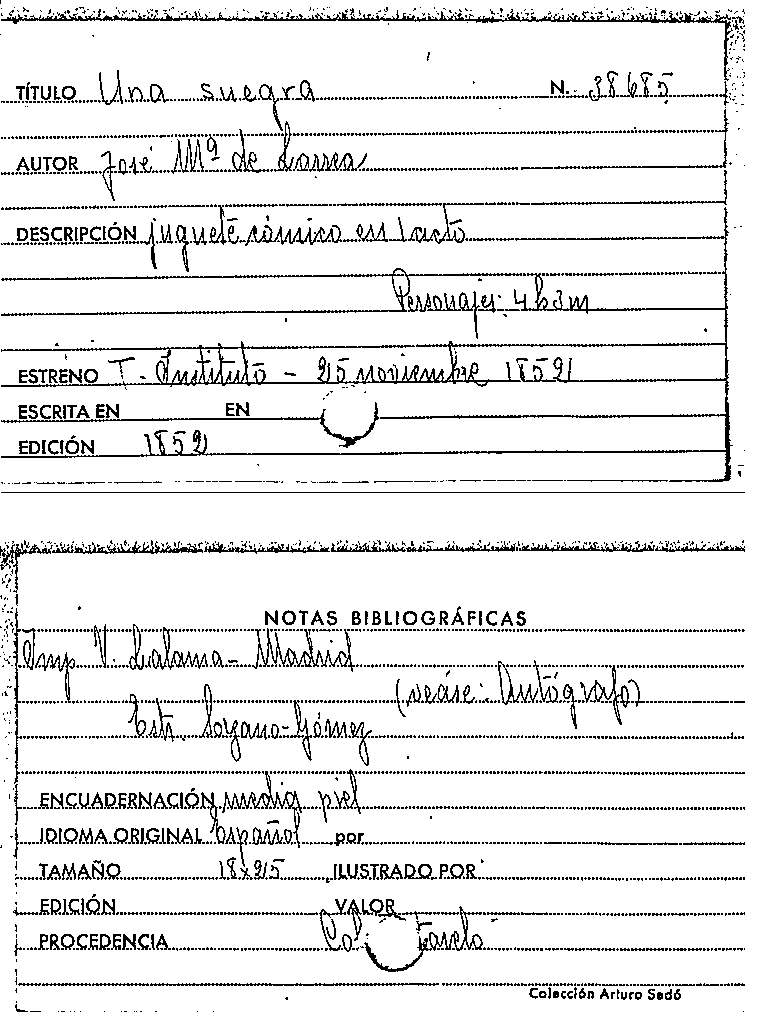 TÍTULO Una suegra N. 38685
AUTOR José Mª de Larrea
DESCRIPCIÓN juguete cómico en 1 acto
Personajes: 4h3m
ESTRENO T. Instituto - 25 noviembre 1852
ESCRITA EN EN
EDICIÓN 1852
NOTAS BIBLIOGRÁFICAS
Imp V. Lalama - Madrid
(veáse: Autógrafo)
Estr. Lozano-Gómez
ENCUADERNACIÓN media piel
IDIOMA ORIGINAL Español por
TAMAÑO 18x25 ILUSTRADO POR
EDICIÓN VALOR
PROCEDENCIA Col.
Colección Arturo Sedó